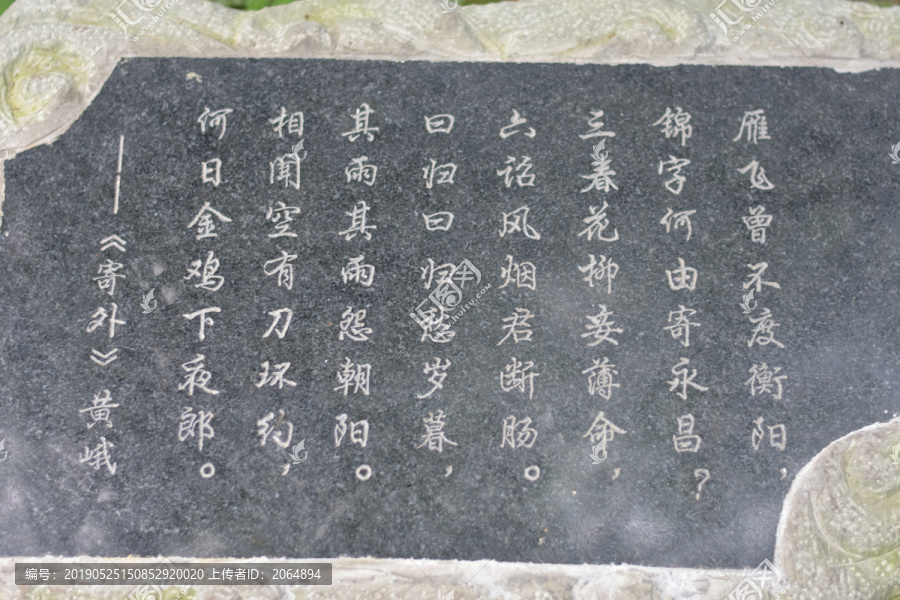 雁飞曾不度衡阳，
锦字何由寄永昌？
三春花柳妾薄命，
六诏风烟君断肠。
曰归曰归愁岁暮，
其雨其雨怨朝阳。
相闻空有刀环约，
何日金鸡下夜郎。
——《寄外》黄峨
编号：20190525150852920020 上传者：2064894